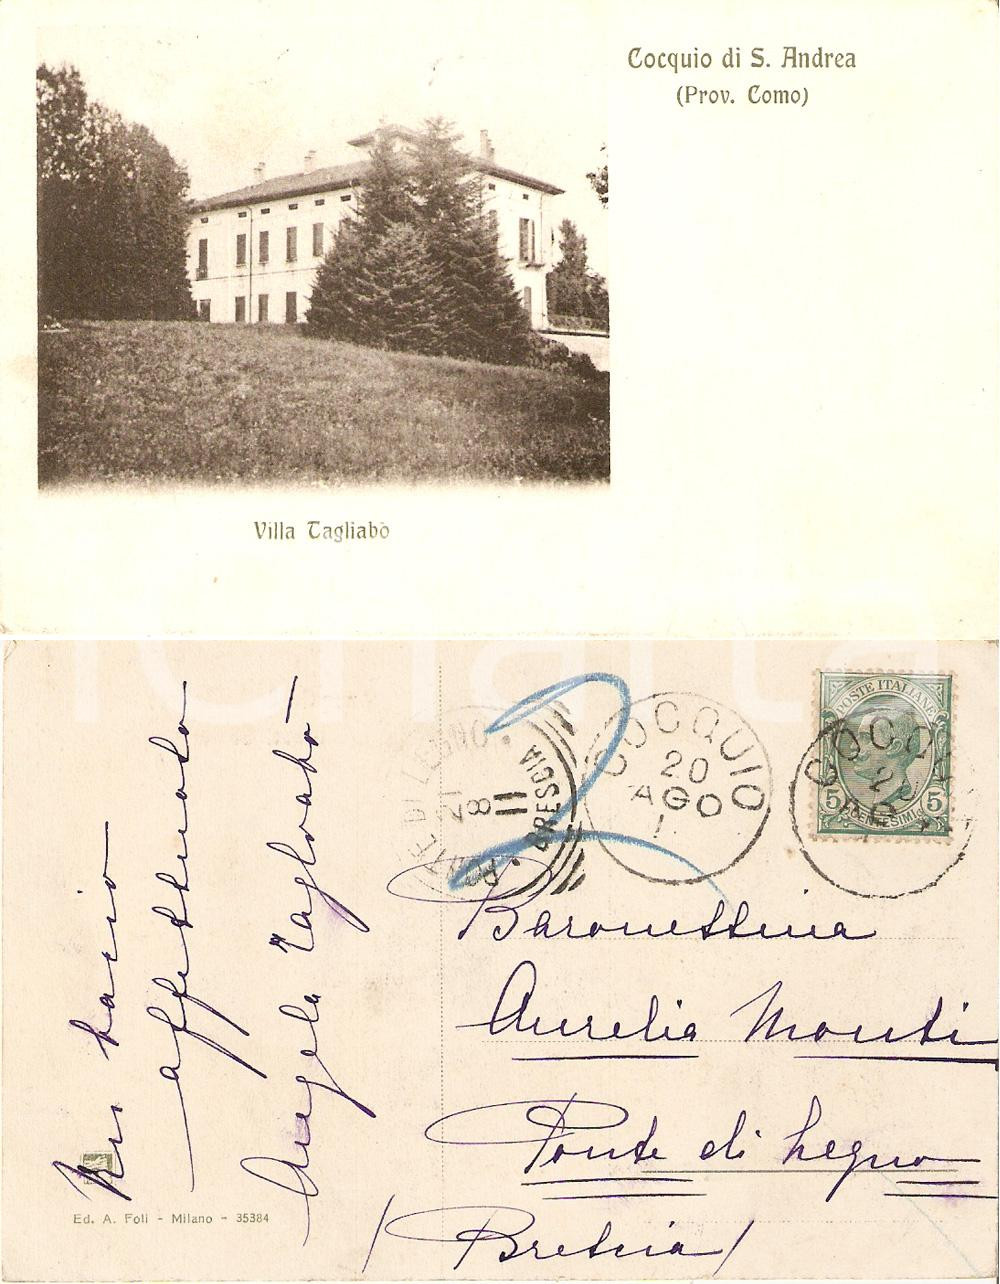 Cocquio di S. Andrea
(Prov. Como)
Villa Tagliabò
PONTE DI LEGNO
BRESCIA
21
8
11
COCQUIO
20
AGO
1
POSTE ITALIANE
5 CENTESIMI 5
COCQU
20
AGO
Un bacio
affettuoso
Angela Tagliabò
Baronessina
Aurelia Monti
Ponte di Legno
(Brescia)
Ed. A. Foli - Milano - 35384